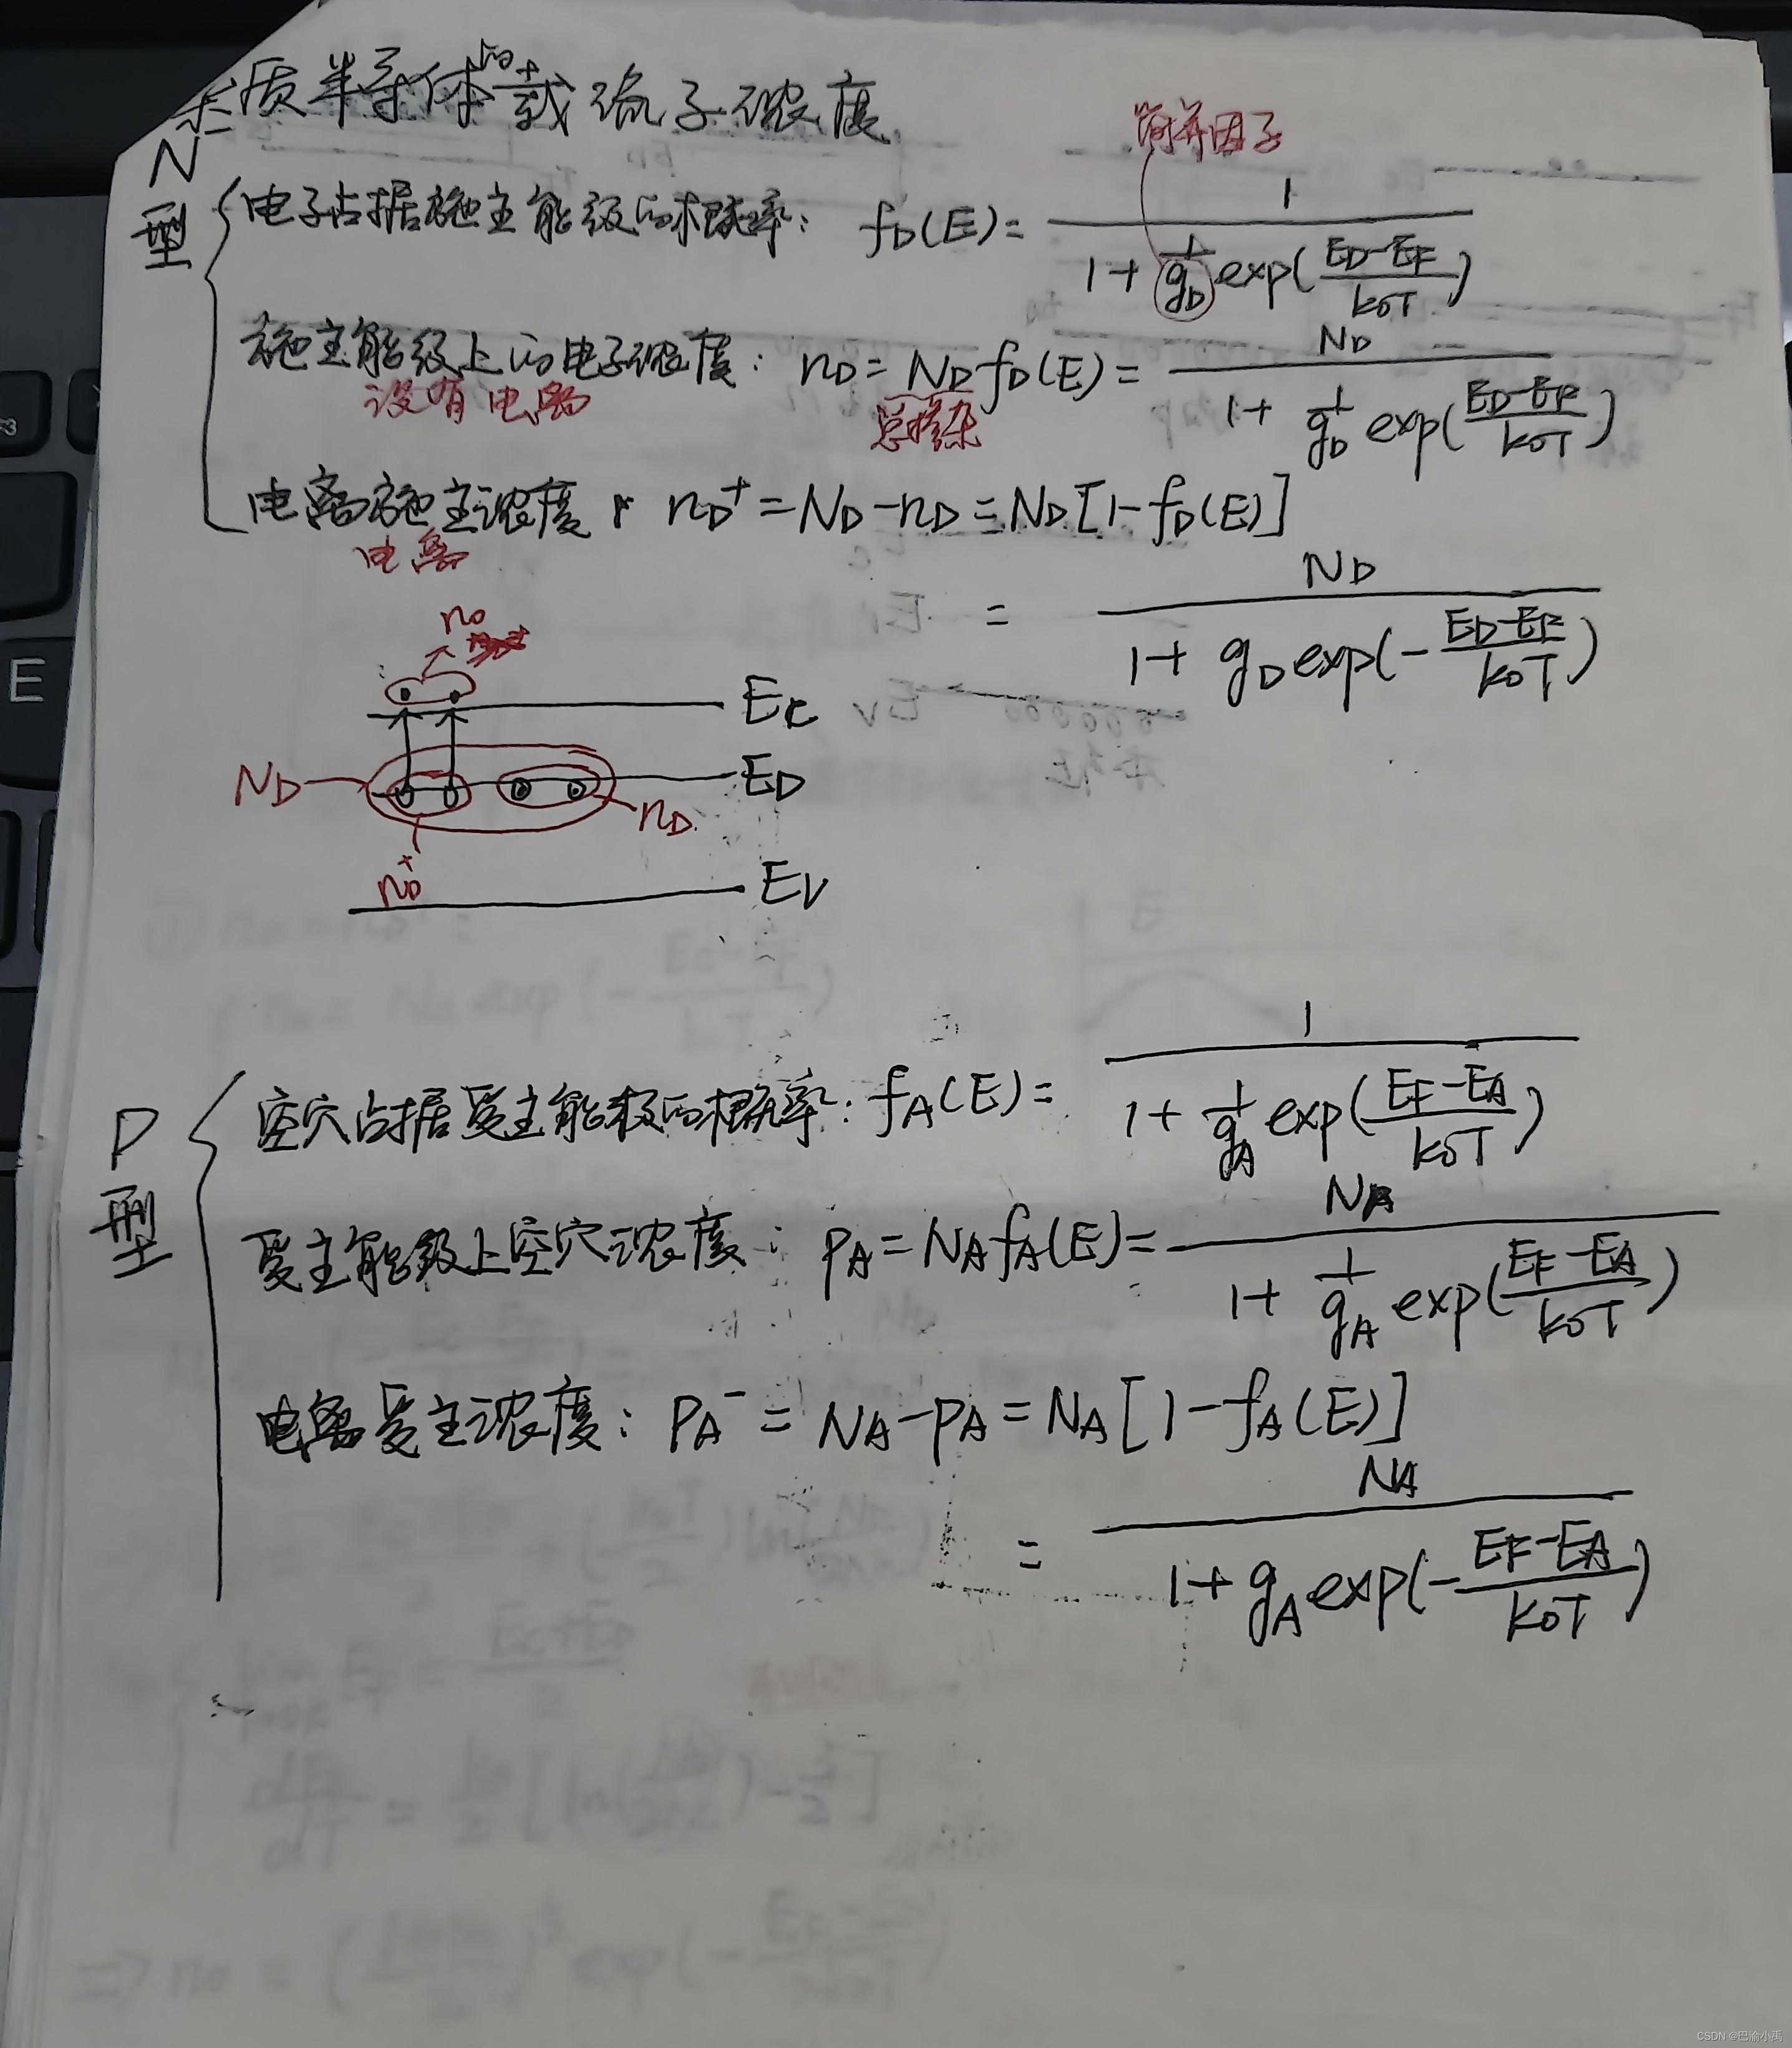 杂质半导体的载流子浓度
N型
简并因子
电子占据施主能级的概率: f_D(E) = 1 / (1 + (1/g_D) exp((E_D-E_F)/(k_0T)))
施主能级上的电子浓度: n_D = N_D f_D(E) = N_D / (1 + (1/g_D) exp((E_D-E_F)/(k_0T)))
没有电离
总掺杂
电离施主浓度: n_D^+ = N_D - n_D = N_D[1-f_D(E)]
电离
= N_D / (1 + g_D exp(-(E_D-E_F)/(k_0T)))
n_0
E_c
N_D
E_D
n_D
n_D^+
E_V
P型
空穴占据受主能级的概率: f_A(E) = 1 / (1 + (1/g_A) exp((E_F-E_A)/(k_0T)))
受主能级上空穴浓度: p_A = N_A f_A(E) = N_A / (1 + (1/g_A) exp((E_F-E_A)/(k_0T)))
电离受主浓度: p_A^- = N_A - p_A = N_A[1-f_A(E)]
= N_A / (1 + g_A exp(-(E_F-E_A)/(k_0T)))
E
CSDN @巴渝小禹